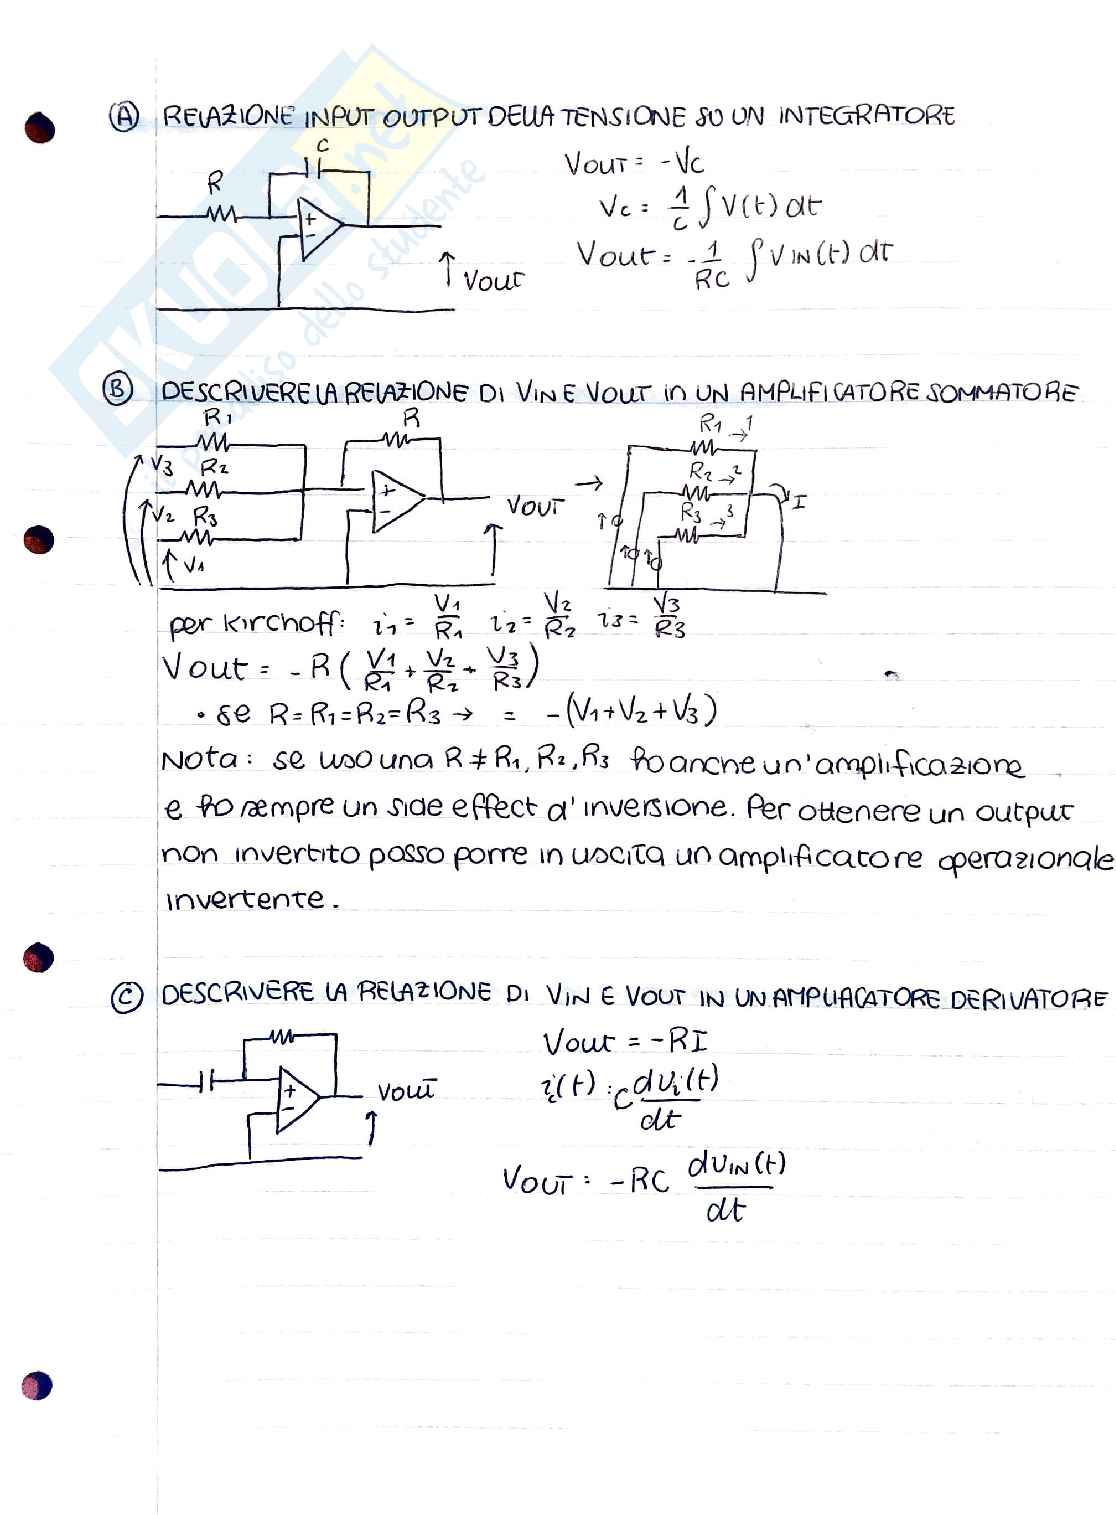 A RELAZIONE INPUT OUTPUT DELLA TENSIONE SU UN INTEGRATORE
C
R
+
-
Vout
VOUT = -Vc
Vc = 1/C ∫V(t) dt
Vout = -1/RC ∫VIN(t) dt
SKUOLA.net
il paradiso dello studente
B DESCRIVERE LA RELAZIONE DI VIN E VOUT in UN AMPLIFICATORE SOMMATORE
R1 R
V3 R2
V2 R3
V1
+
-
VOUT →
R1 → 1
R2 → 2
R3 → 3
I
per Kirchoff: i1 = V1/R1 i2 = V2/R2 i3 = V3/R3
Vout = -R(V1/R1 + V2/R2 + V3/R3)
• se R=R1=R2=R3 → = -(V1+V2+V3)
Nota: se uso una R ≠ R1, R2, R3 ho anche un'amplificazione
e ho sempre un side effect d'inversione. Per ottenere un output
non invertito posso porre in uscita un amplificatore operazionale
invertente.
C DESCRIVERE LA RELAZIONE DI VIN E VOUT IN UN AMPLIFICATORE DERIVATORE
+
-
VOUT
Vout = -RI
i(t) : C dvi(t)/dt
VOUT = -RC dVIN(t)/dt